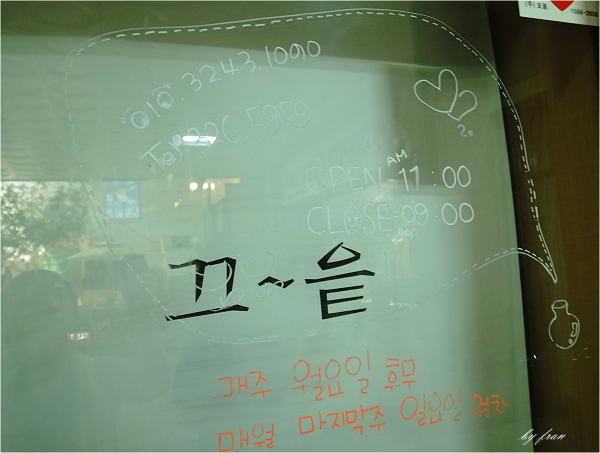 010.3243.1090
Tel.226.5959
AM
OPEN-11:00
CLOSE-09:00
끄~읕
매주 월요일 휴무
매월 마지막주 일요일
by fran